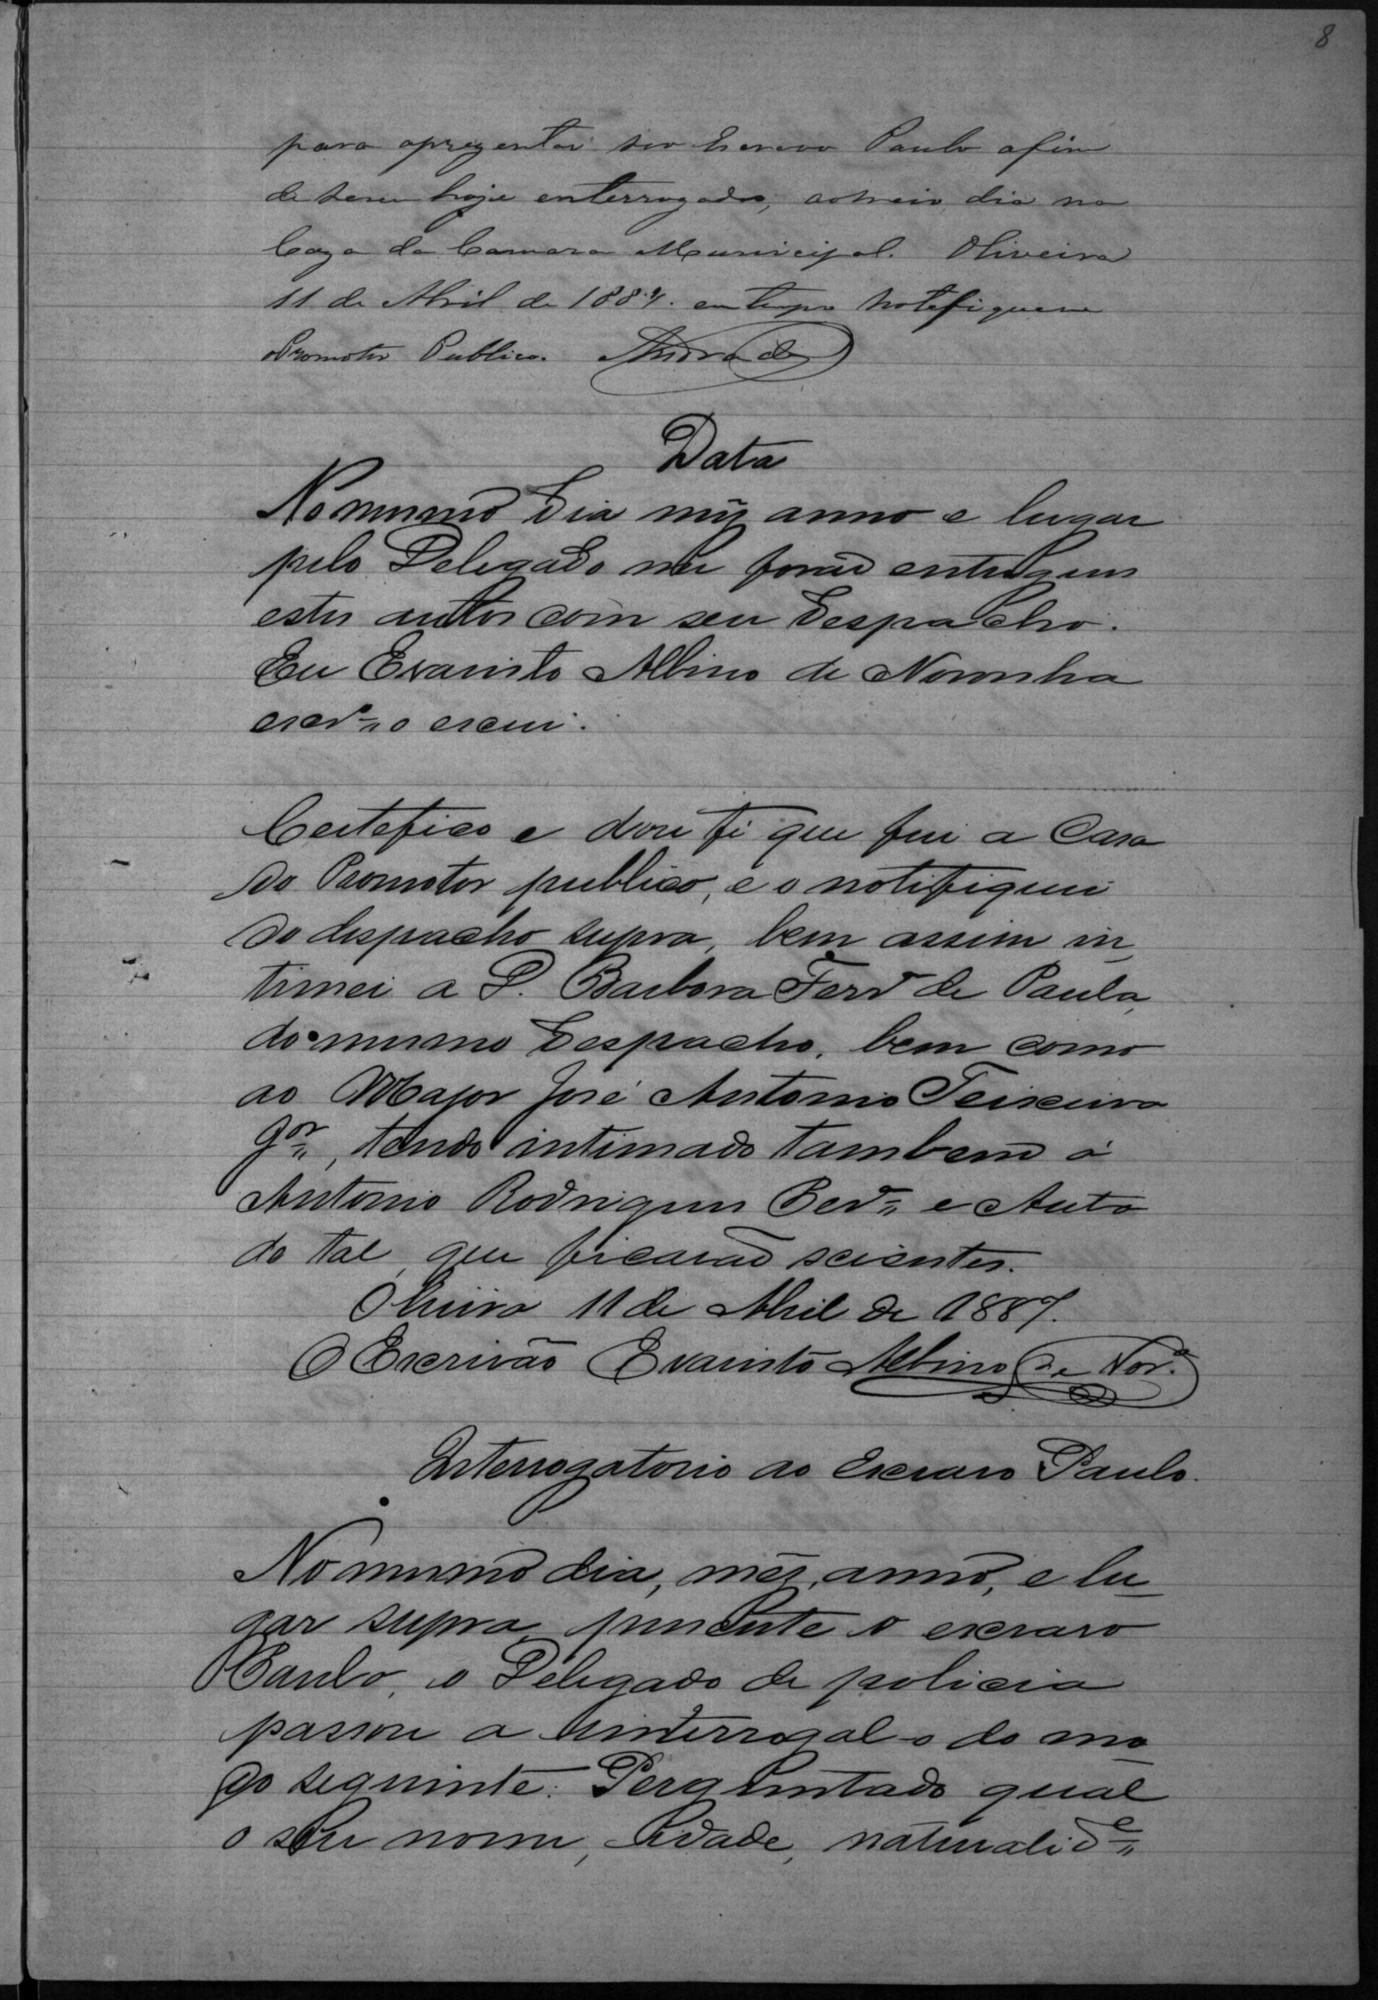 8
para aprezentar seu escravo Paulo afim
de serem hoje enterrogados, ao meio dia na
Caza da Camara Municipal. Oliveira
11 de Abril de 1887. em tempo notefiquese
o Promotor Publico. Andrade
Data
No mesmo dia mêz anno e lugar
pelo Delegado me forão entregues
estes autos com seu despacho.
Eu Evaristo Albino de Noronha
escrvm o escrevi.
Certefico e dou fé que fui a Casa
do Promotor publico, e o notifiquei
do despacho supra, bem assim in
timei a D. Barbora Ferrª de Paula,
do mesmo despacho, bem como
ao Major José Antonio Teixeira
Jor, tendo intimado tambem á
Antonio Rodrigues
de tal, que ficarão scientes.
Oliveira 11 de Abril de 1887.
O Escrivão Evaristo Albino de Norª
Interrogatorio ao escravo Paulo.
No mesmo dia, mêz, anno, e lu
gar supra, presente o escravo
Paulo, o Delegado de policia
passou a interrogal-o do mo
do seguinte: Perguntado qual
o seu nome, Idade, naturalidᵉ